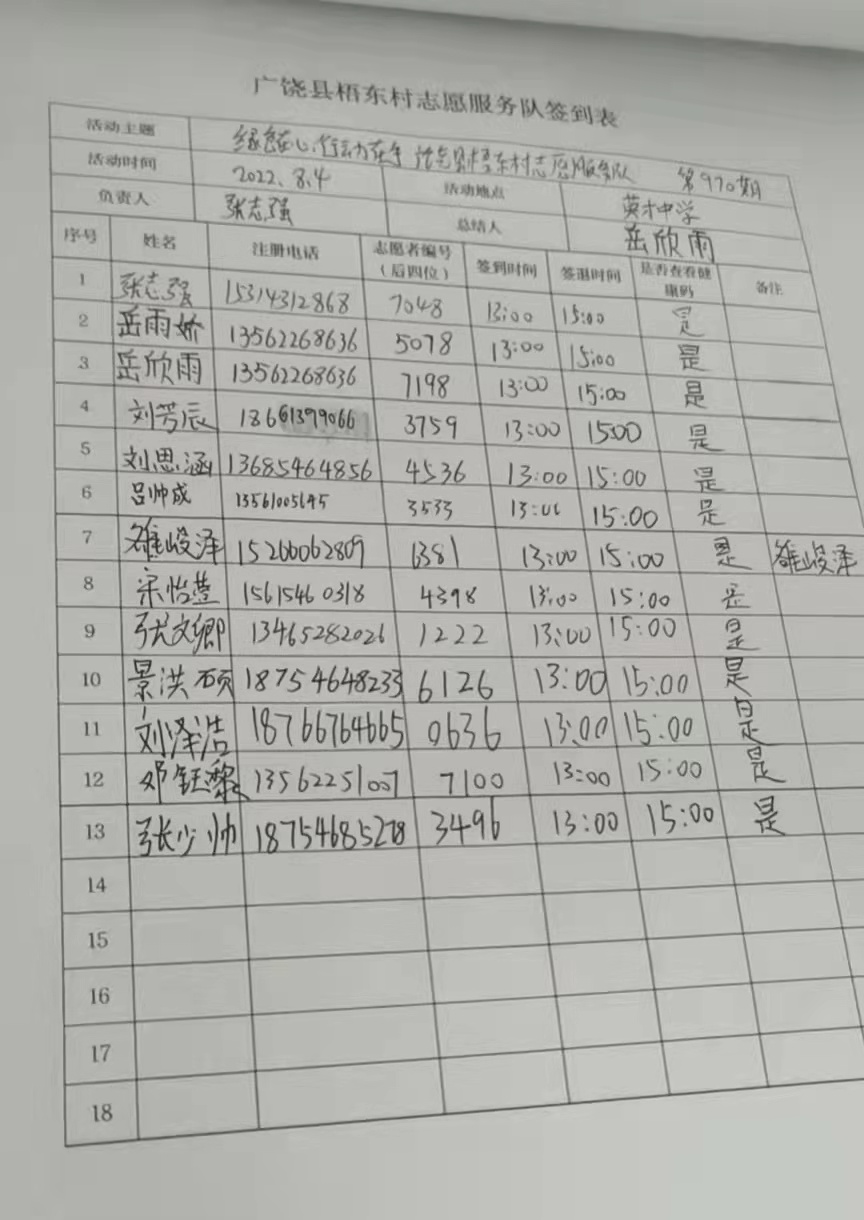 广饶县梧东村志愿服务队签到表
活动主题 绿色在心,行动在手 广饶县梧东村志愿服务队 第970期
活动时间 2022.8.4 活动地点 英才中学
负责人 张志强 总结人 岳欣雨
序号 姓名 注册电话 志愿者编号(后四位) 签到时间 签退时间 是否查看健康码 备注
1 张志强 15314312868 7048 13:00 15:00 是
2 岳雨娇 13562268636 5078 13:00 15:00 是
3 岳欣雨 13562268636 7198 13:00 15:00 是
4 刘芳辰 18661399066 3759 13:00 15:00 是
5 刘思涵 13685464856 4536 13:00 15:00 是
6 吕帅成 13561005645 3533 13:00 15:00 是
7 雒峻泽 15266062809 6381 13:00 15:00 是 雒峻泽
8 宋怡萱 15615460318 4398 13:00 15:00 是
9 张文卿 13465282026 1222 13:00 15:00 是
10 景洪硕 18754648233 6126 13:00 15:00 是
11 刘泽浩 18766764665 0636 13:00 15:00 是
12 邓钰黎 13562251007 7100 13:00 15:00 是
13 张少帅 18754685278 3496 13:00 15:00 是
14
15
16
17
18